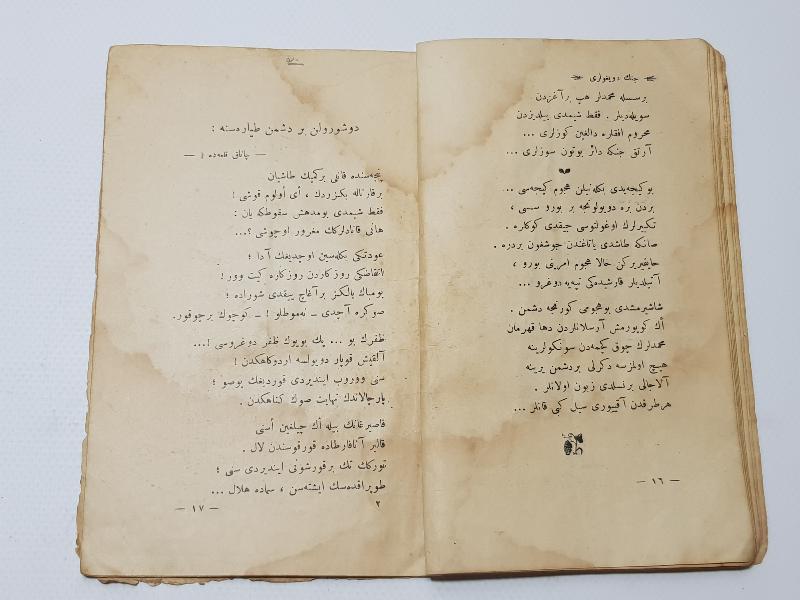 جنك دويغولرى
برسسله محمدلر هپ برآغزدن
سويله‌ديلر . فقط شيمدى ييلديزدن
محروم افقلره دالغين كوزلرى ...
آرتق جنكه دائر بوتون سوزلرى ...
بوكيجه‌يدى بكله‌نيلن هجوم كيجه‌سى ...
بردن بره دويولونجه بر بورو سسى ،
تكبيرلرك اوغولتوسى چيقدى كوكلره .
صانكه طاشدى ياتاغندن جوشغون بردره .
حايقيريركن حالا هجوم امرينى بورو ،
آتيلديلر قارشيده‌كى تپه‌يه دوغرو ...
شاشيرمشدى بوهجومى كورنجه دشمن .
اك كوپورمش آرسلانلردن دها قهرمان
محمدلرك چوق كچمه‌دن سونكولرينه
هيچ اولمزسه دكرلى بردشمن يرينه
آلاجالى برنسلدى زبون اولانلر .
هرطرفدن آقييورى سيل كبى قانلر ...
— ١٦ —
دوشورولن بر دشمن طياره‌سنه :
— چاناق قلعه‌ده ! —
پنجه‌سنده قانلى بركميك طاشيان
برقارتاله بكزردك ، أى أولوم قوشى !
فقط شيمدى بومدهش سقوطكه يان :
هانى قانادلركك مغرور اوچوشى ؟...
عودتكى بكله‌سين اوچديغك آدا ؛
انقاضكى روزكاردن روزكاره كيت وور !
بومباك يالكز برآغاچ ييقدى شوراده ؛
صوكره آچدى ـ نه‌موطلو ! ـ كوچوك برچوقور.
ظفرك بو ... پك بويوك ظفر دوغروسى !...
آلقيش قوپار دويولسه اردوكاهكدن !
سنى ووروب اينديردى قورديغك بوصو ؛
پارچالاندك نهايت صوك كناهكدن .
قاصيرغانك بيله اك چيلغين أسنى
قالير آنافارطاده قورقوسندن لال .
توركك تك برقورشونى اينديردى سنى ؛
طوپراقده‌سك ايشته‌سن ، سماده هلال ...
— ١٧ —
٢